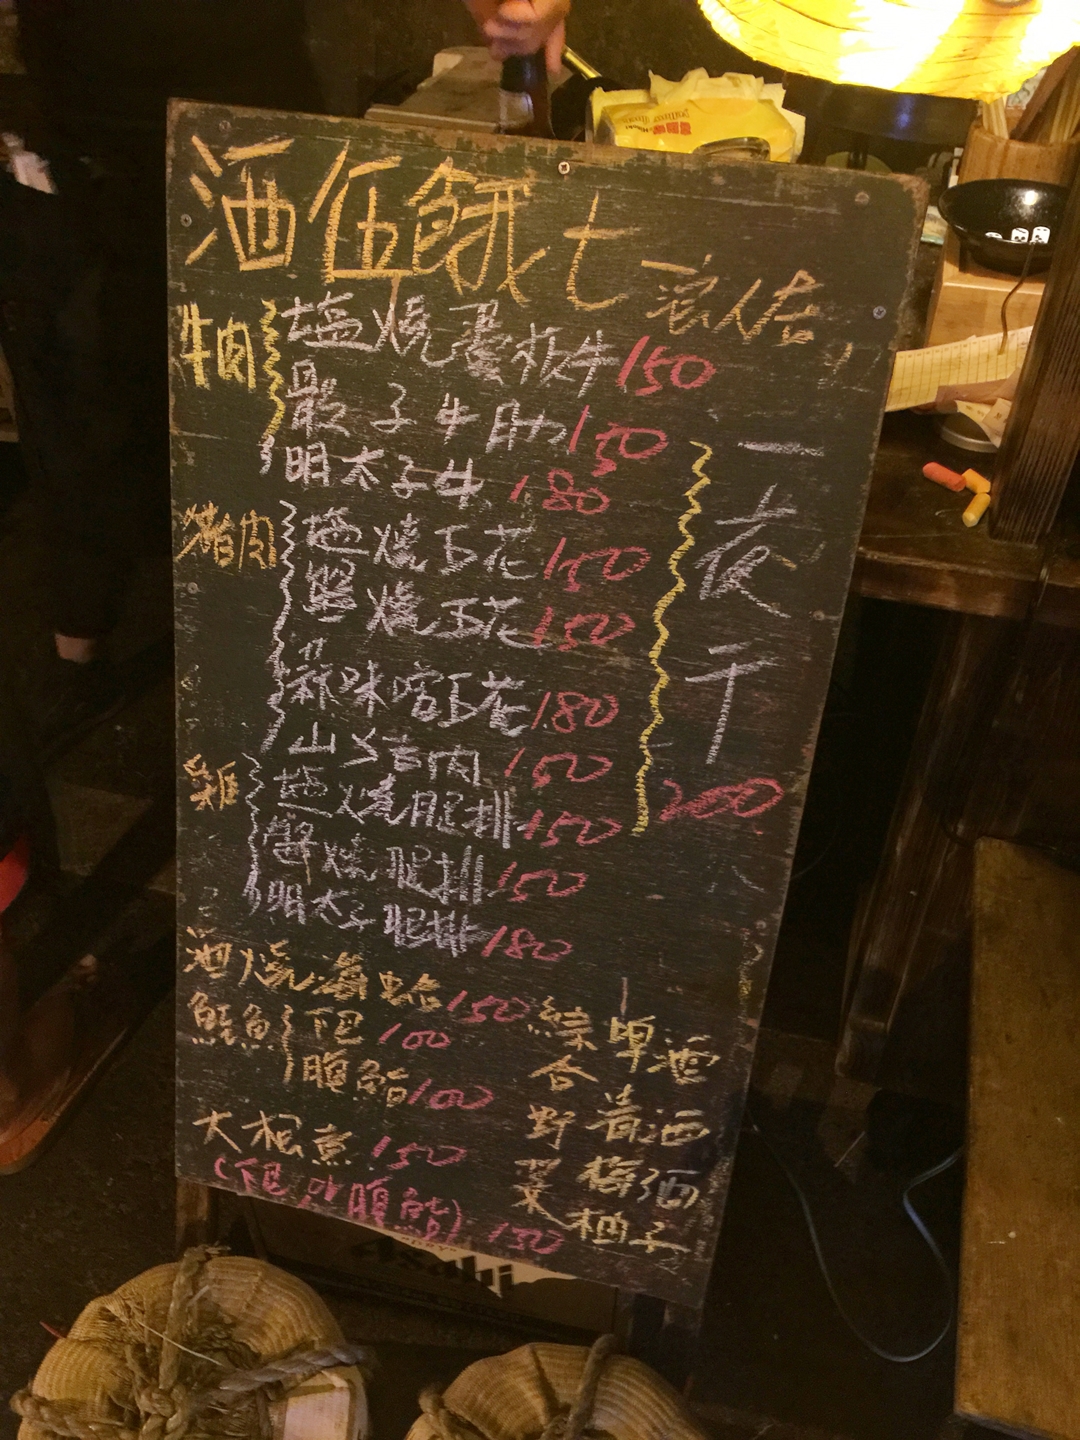 酒伍餓七
浪人居
牛肉
塩燒翼板牛 150
骰子牛肋 150
明太子牛 180
豬肉
塩燒五花 150
醬燒五花 150
蒜味噌五花 180
山賊肉 150
雞
塩燒腿排 150
醬燒腿排 150
明太子腿排 180
一夜干
200
酒燒海蛤 150
鮭魚
下巴 100
腹 100
大根煮 150
150
綜合野菜
啤酒
清酒
梅酒
柚子
Asahi